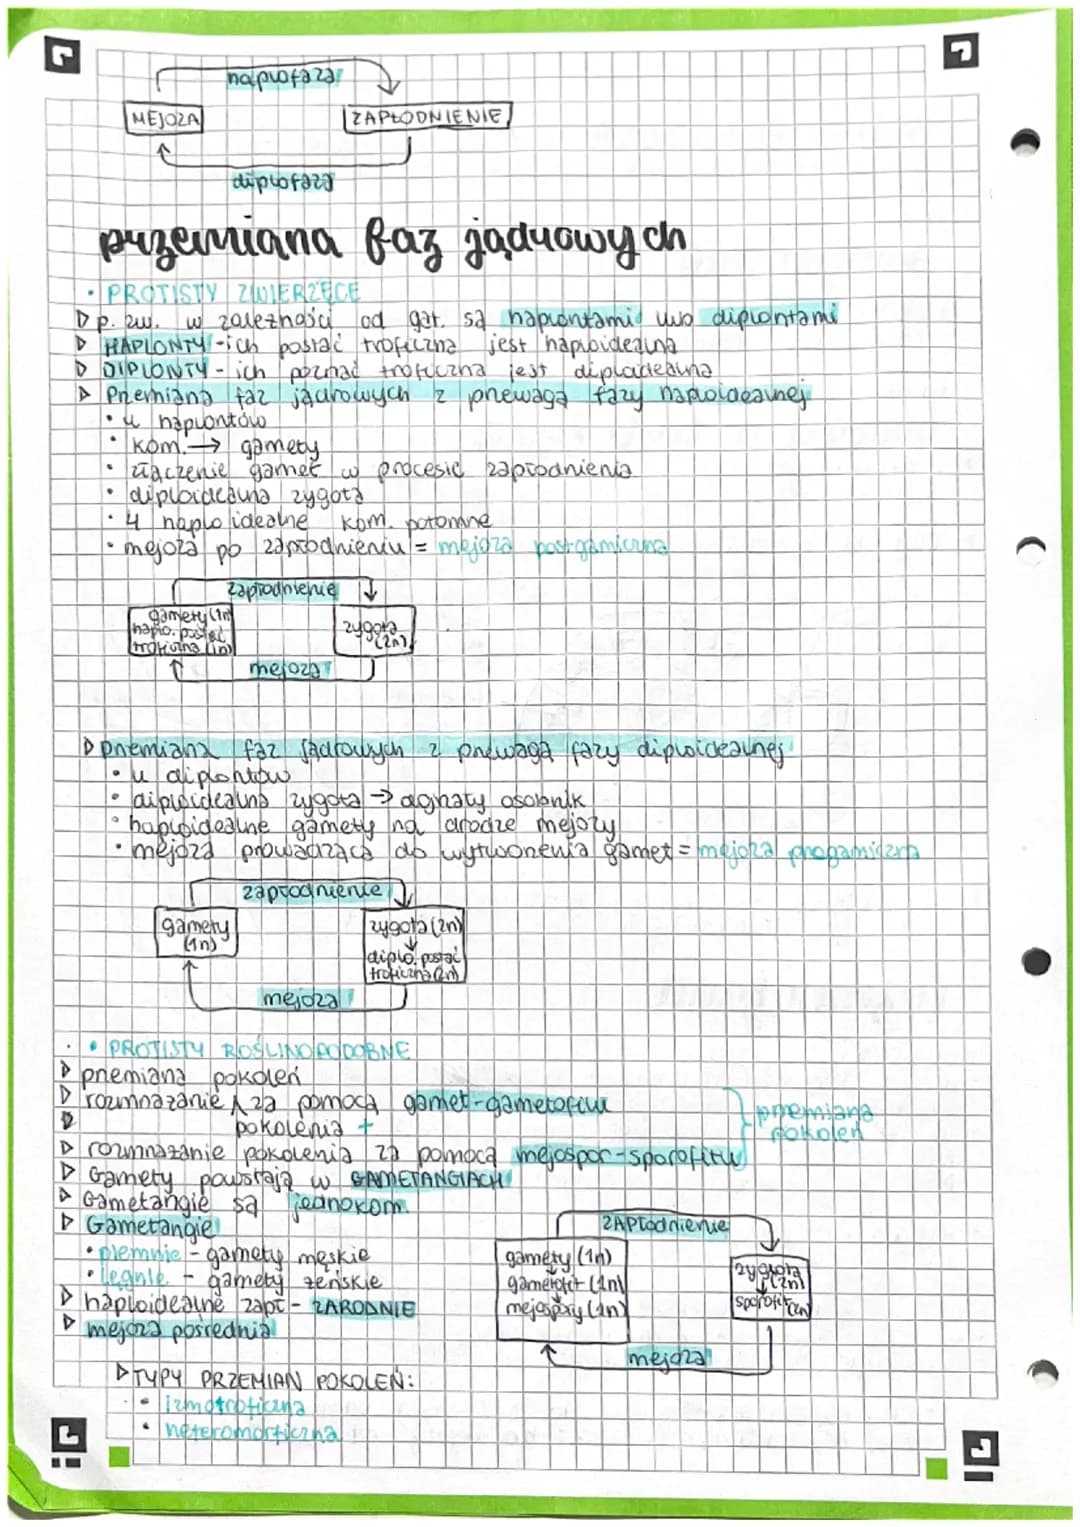 haplofaza
MEJOZA
ZAPŁODNIENIE
diplofaza
przemiana faz jądrowych
• PROTISTY ZWIERZĘCE
▷ p. zw. w zależności od gat. są haplontami lub diplontami
▷ HAPLONTY - ich postać troficzna jest haploidealna
▷ DIPLONTY - ich poznać troficzna jest diploidealna
▷ Przemiana faz jądrowych z przewagą fazy haploidealnej
• u haplontów
• kom. → gamety
• złączenie gamet w procesie zapłodnienia
• diploidealna zygota
• 4 haploidealne kom. potomne
• mejoza po zapłodnieniu = mejoza postgamiczna
zapłodnienie
gamety (1n)
haplo. postać
troficzna (1n)
zygota
(2n)
mejoza
▷ przemiana faz jądrowych z przewagą fazy diploidealnej
• u diplontów
• diploidealna zygota → dojrzały osobnik
• haploidealne gamety na drodze mejozy
• mejoza prowadząca do wytworzenia gamet = mejoza pregamiczna
zapłodnienie
gamety
(1n)
zygota (2n)
↓
diplo. postać
troficzna (2n)
mejoza
• PROTISTY ROŚLINOPODOBNE
▷ przemiana pokoleń
▷ rozmnażanie ʌ za pomocą gamet - gametofitu
▷ pokolenia +
▷ rozmnażanie pokolenia za pomocą mejospor - sporofitu
przemiana
pokoleń
▷ Gamety powstają w GAMETANGIACH
▷ Gametangie są jednokom.
▷ Gametangie
• plemnie - gamety męskie
• lęgnie - gamety żeńskie
▷ haploidealne zapł - ZARODNIE
▷ mejoza pośrednia
ZAPłodnienie
gamety (1n)
gametofit (1n)
mejospory (1n)
zygota
↓ (2n)
sporofit (2n)
mejoza
▷ TYPY PRZEMIAN POKOLEŃ:
• izmotroficzna
• heteromorficzna